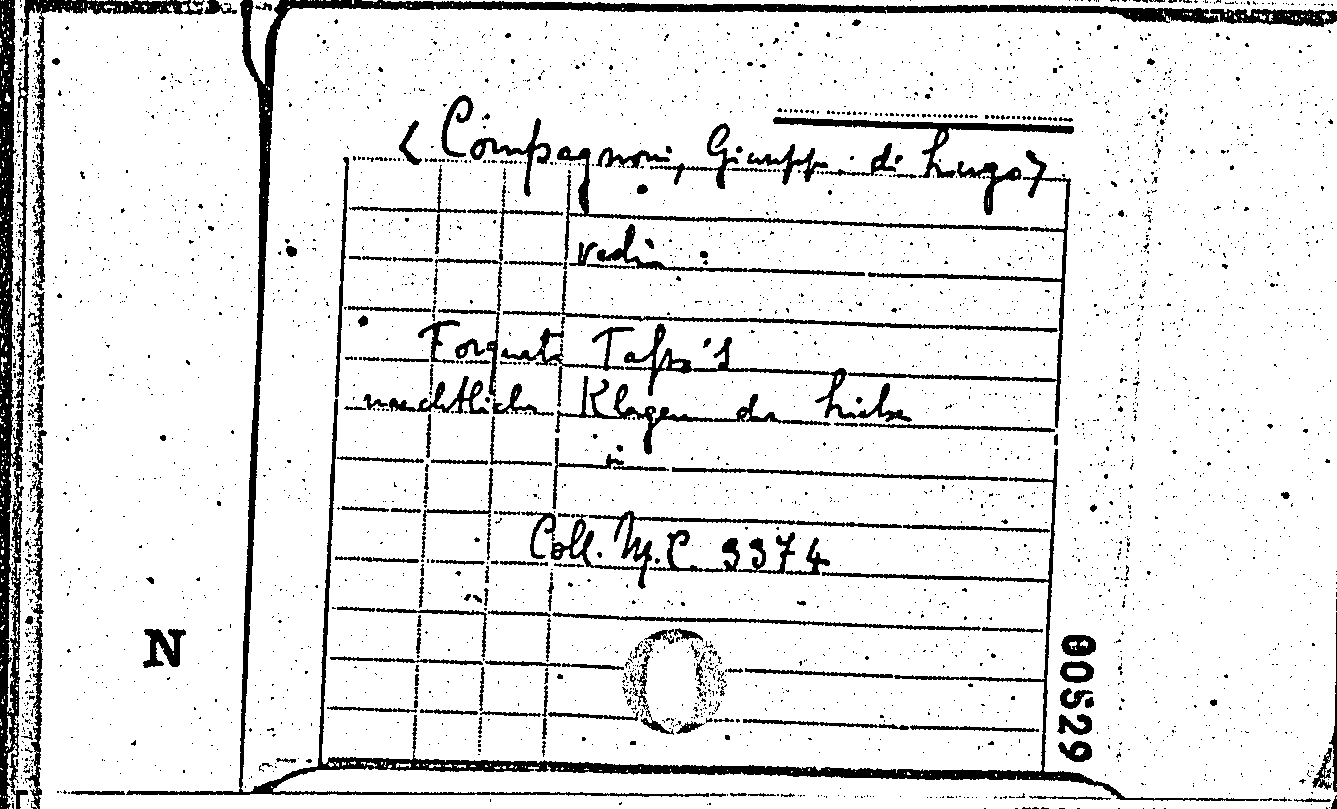 <Compagnoni, Giuseppe di Lugo>
vedi :
Torquato Tasso's
naechtliche Klagen der Liebe
in
Coll. M.C. 3374
N
00529